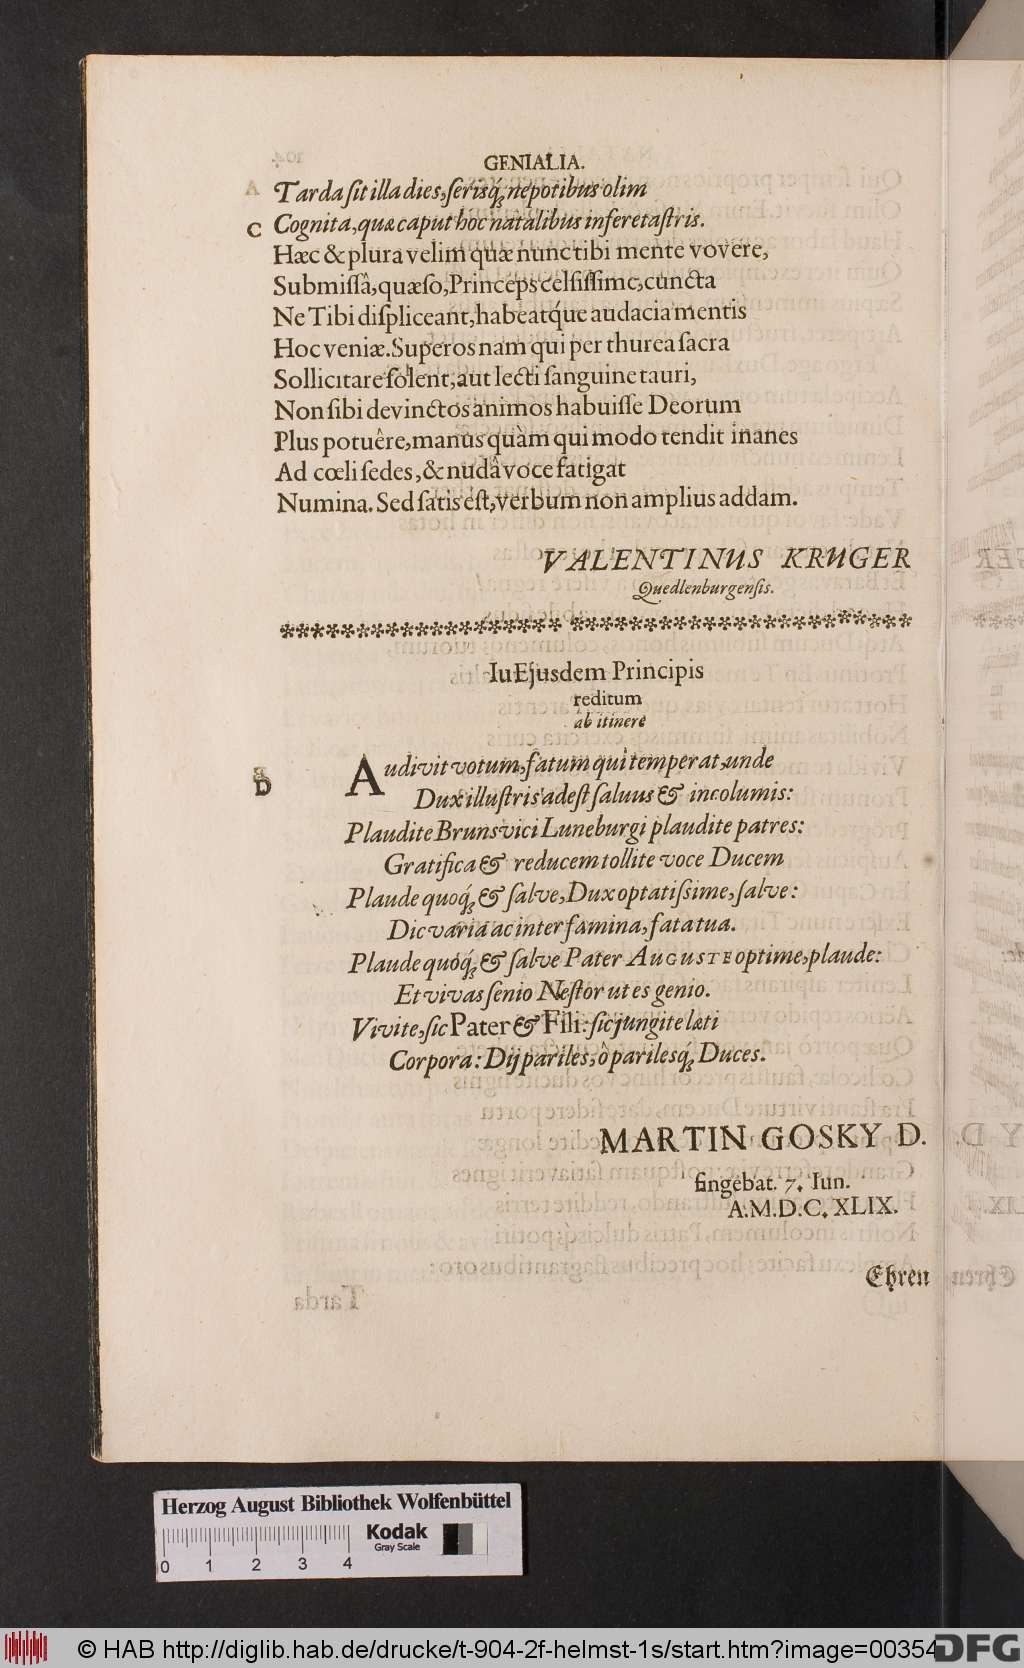 GENIALIA.
Tarda ſit illa dies, ſerisq́; nepotibus olim
C Cognita, quæ caput hoc natalibus inferet aſtris.
Hæc & plura velim quæ nunc tibi mente vovere,
Submiſſâ, quæſo, Princeps celſiſſime, cuncta
Ne Tibi diſpliceant, habeatq́ue audacia mentis
Hoc veniæ. Superos nam qui per thurea ſacra
Sollicitare ſolent, aut lecti ſanguine tauri,
Non ſibi devinctos animos habuiſſe Deorum
Plus potuêre, manus quàm qui modo tendit inanes
Ad cœli ſedes, & nudâ voce fatigat
Numina. Sed ſatis eſt, verbum non amplius addam.
VALENTINUS KRUGER
Quedlenburgenſis.
Iu Ejusdem Principis
reditum
ab itinere
D
Audivit votum, fatum qui temperat, unde
Dux illuſtris adeſt ſaluus & incolumis:
Plaudite Brunsvici Luneburgi plaudite patres:
Gratifica & reducem tollite voce Ducem
Plaude quoq́; & ſalve, Dux optatiſsime, ſalve:
Dic varia ac inter famina, fata tua.
Plaude quóq́; & ſalve Pater AUGUSTE optime, plaude:
Et vivas ſenio Neſtor ut es genio.
Vivite, ſic Pater & Fili: ſic jungite læti
Corpora: Dij pariles, ô parilesq́; Duces.
MARTIN GOSKY D.
fingebat. 7. Iun.
A. M. D. C. XLIX.
Ehren
Herzog August Bibliothek Wolfenbüttel
Kodak
Gray Scale
0 1 2 3 4
© HAB http://diglib.hab.de/drucke/t-904-2f-helmst-1s/start.htm?image=00354
DFG